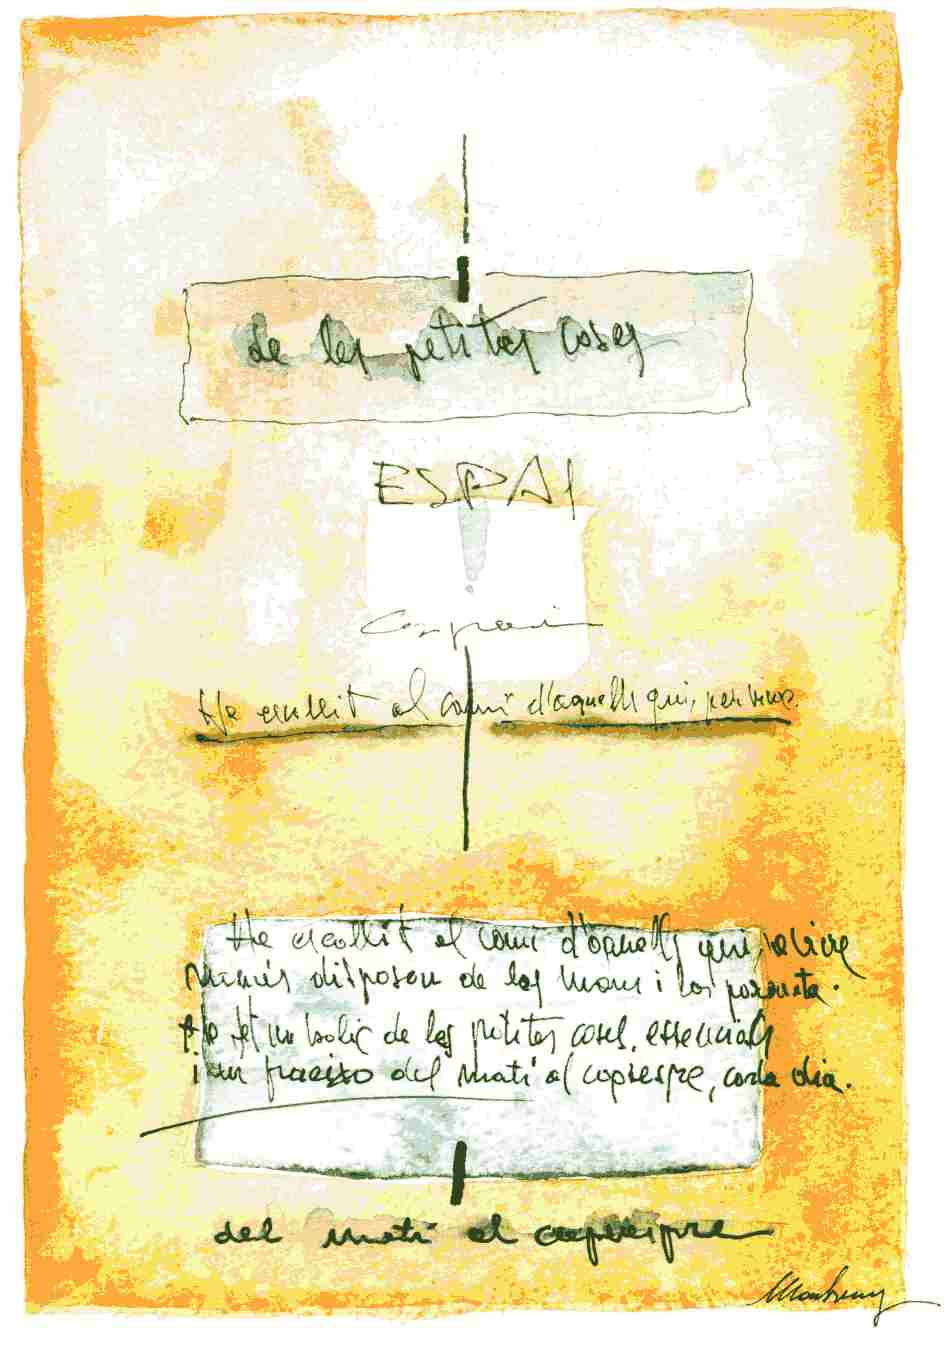 de les petites coses
ESPAI
He escollit el camí d'aquells qui, per viure
He escollit el camí d'aquells qui, per viure
només disposen de les mans i les
He fet un bolic de les petites coses, essencials
i em del matí al capvespre, cada dia.
del matí al capvespre